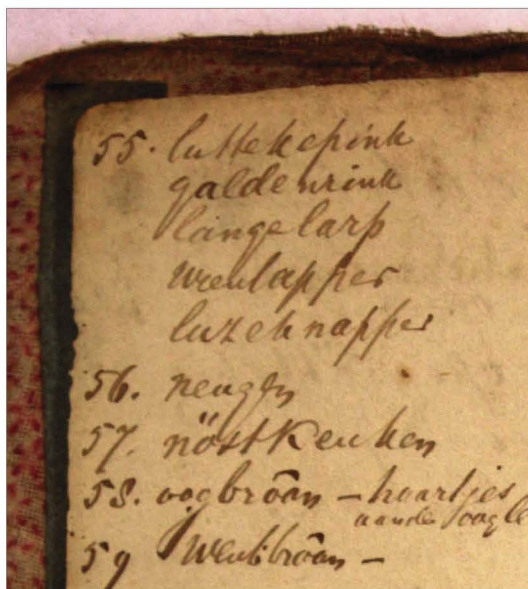 55. luttekepink
galdenrink
langelarp
luzeknapper
56. neugen
57. nöstkeuken
58. oogbrôan - haartjes
aande
59 wentbrôan -